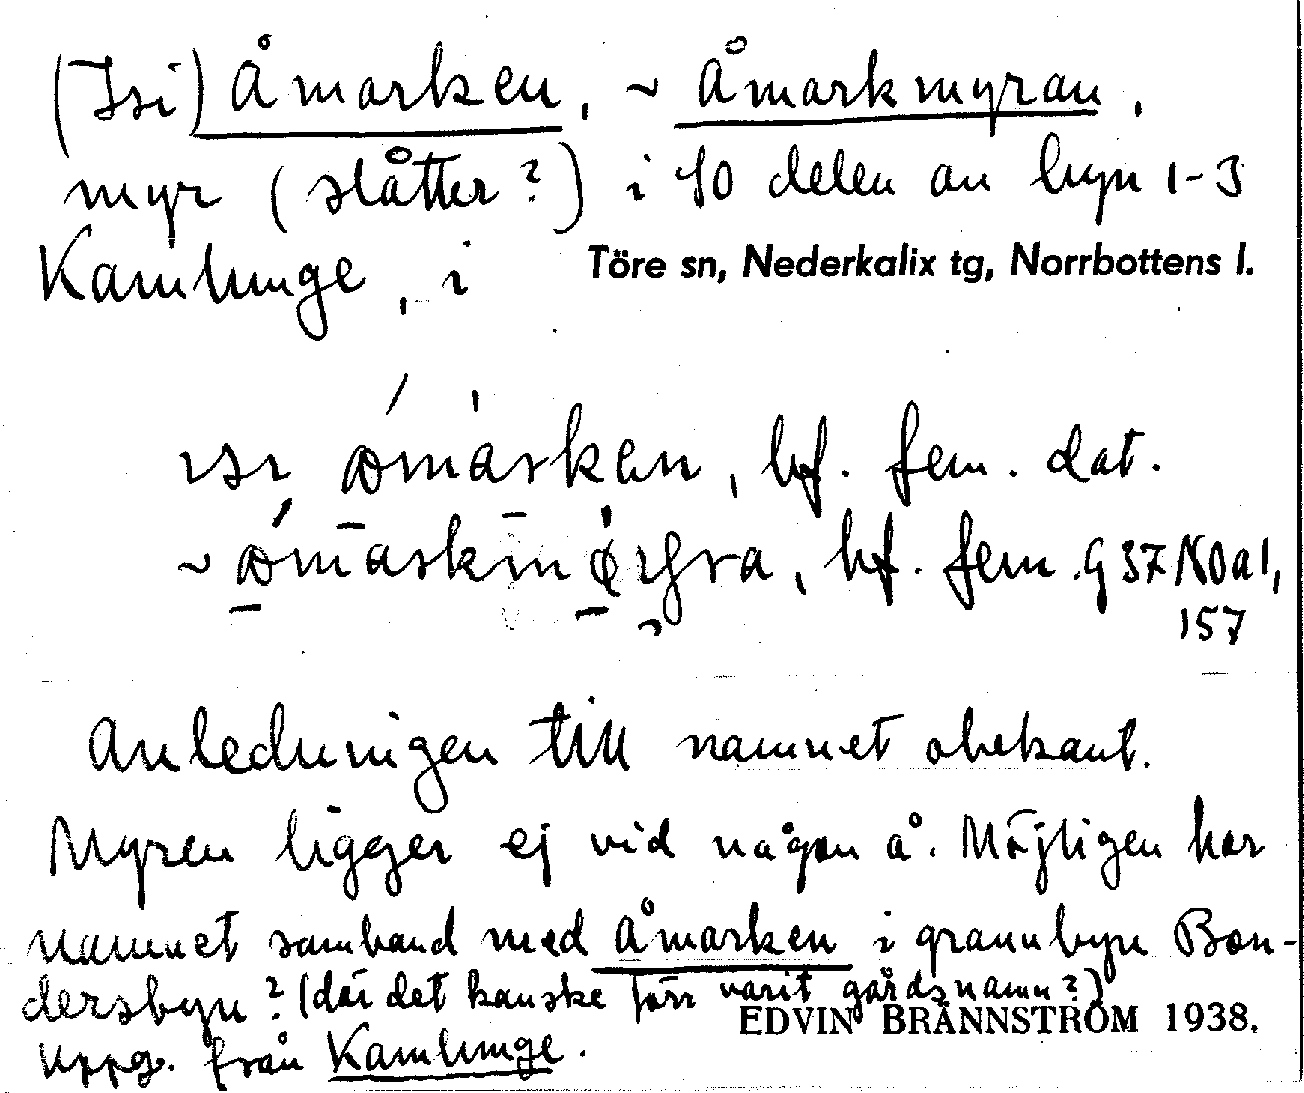 (Isi) Åmarken, ~ Åmarkmyran,
myr (slåtter?) i SO delen av byn 1-3
Kamlunge, i Töre sn, Nederkalix tg, Norrbottens l.
bf. fem. dat.
bf. fem. G 37 NOa1,
157
Anledningen till namnet obekant.
Myren ligger ej vid någon å. Möjligen har
namnet samband med Åmarken i grannbyn Bon-
dersbyn? (där det kanske förr varit gårdsnamn?)
EDVIN BRÄNNSTRÖM 1938.
Uppg. från Kamlunge.